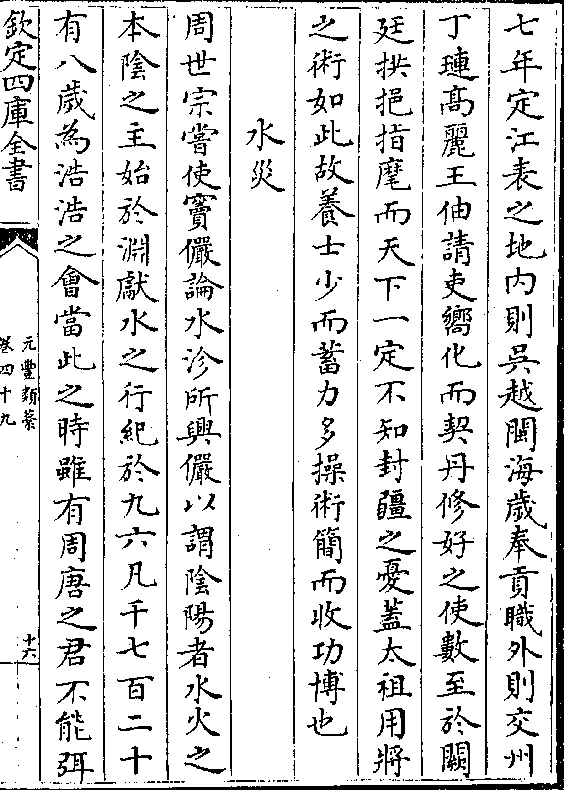 七年定江表之地内則吳越閩海歲奉貢職外則交州
丁璉髙麗王伷請吏嚮化而契丹修好之使數至於闕
廷拱挹指麾而天下一定不知封疆之憂蓋太祖用將
之術如此故養士少而蓄力多操術簡而收功博也
水災
周世宗嘗使竇儼論水沴所興儼以謂陰陽者水火之
本陰之主始於淵獻水之行紀於九六凡千七百二十
有八歲為浩浩之會當此之時雖有周唐之君不能弭
欽定四庫全書
元豐類藁
卷四十九
十六